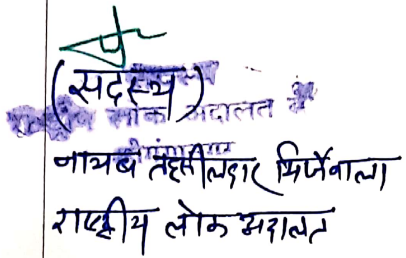 (सदस्य)
लोक अदालत
नायब तहसीलदार मिर्जेवाला
राष्ट्रीय लोक अदालत